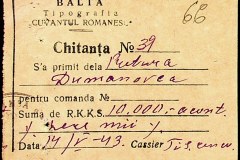 BALTA
Tipografia
"CUVANTUL ROMANESC"
66
Chitanța № 39
S'a primit dela Pretura
Dumanovca
pentru comanda №
Suma de R.K.K.S. 10.000.- acont.
/ zece mii /
Data 14/V-43. Cassier